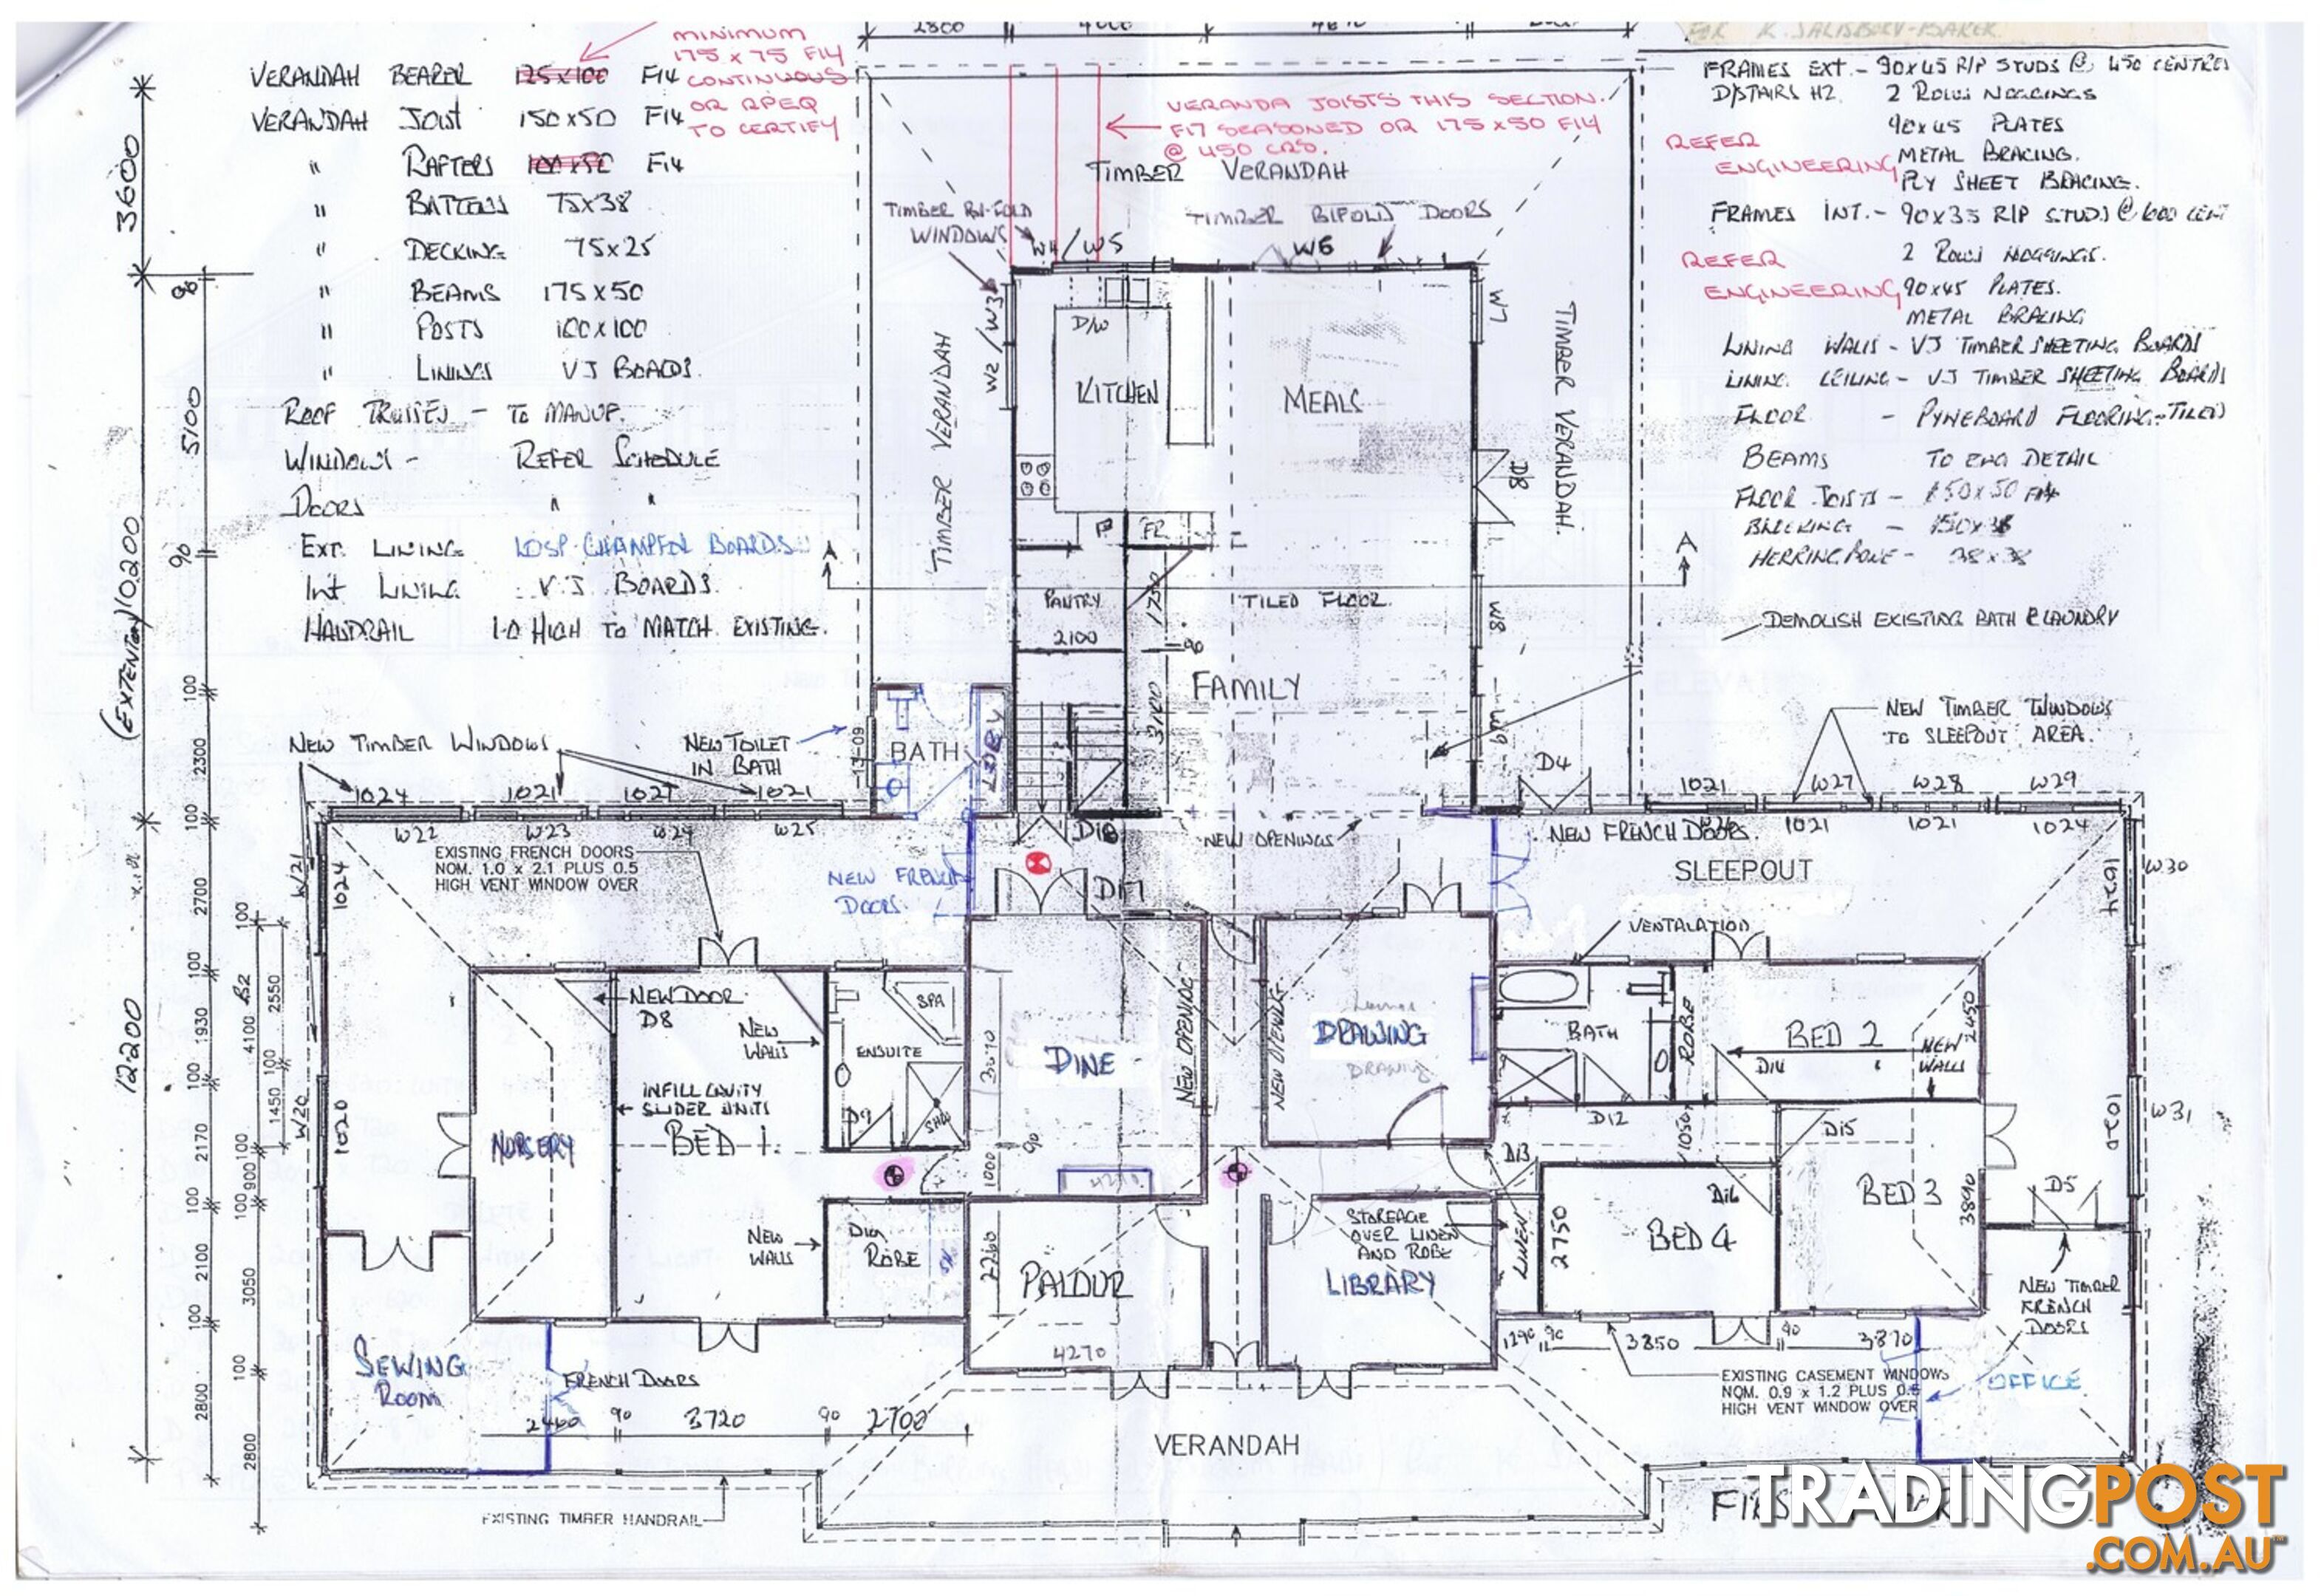 2800
4000
4670
FOR K. SALISBURY-BAKER
MINIMUM
175 x 75 F14
CONTINUOUS
OR RPEQ
TO CERTIFY
VERANDAH BEARER 125x100 F14
VERANDAH JOIST 150x50 F14
" RAFTERS 100x50 F14
" BATTENS 75x38
" DECKING 75x25
" BEAMS 175x50
" POSTS 100x100
" LININGS VJ BOARDS.
ROOF TRUSSES - TO MANUF.
WINDOWS - REFER SCHEDULE
DOORS " "
EXT. LINING LOSP CHAMFER BOARDS
INT LINING V.J. BOARDS.
HANDRAIL 1.0 HIGH TO MATCH EXISTING.
VERANDA JOISTS THIS SECTION.
F17 SEASONED OR 175 x50 F14
@ 450 CRS.
TIMBER VERANDAH
TIMBER BI-FOLD
WINDOWS
TIMBER BIFOLD DOORS
W4/W5
W6
W2/W3
W7
D8
W8
W9
TIMBER VERANDAH
TIMBER VERANDAH.
FRAMES EXT. - 90x45 R/P STUDS @ 450 CENTRES
D/STAIRS H2. 2 ROWS NOGGINGS
90x45 PLATES
REFER
ENGINEERING
METAL BRACING.
PLY SHEET BRACING.
FRAMES INT. - 90x35 R/P STUDS @ 600 CENT
2 ROWS NOGGINGS.
REFER
ENGINEERING
90x45 PLATES.
METAL BRACING
LINING WALLS - VJ TIMBER SHEETING BOARDS
LINING CEILING - VJ TIMBER SHEETING BOARDS
FLOOR - PYNEBOARD FLOORING - TILED
BEAMS TO ENG DETAIL
FLOOR JOISTS - 150x50 F14
BLOCKING - 150x38
HERRING BONE - 38x38
DEMOLISH EXISTING BATH & LAUNDRY
3600
90
5100
90
(EXTENSION) 10200
100
2300
100
12200
2700
100
100
1930
100
2170
100
2100
100
2800
100
4100 B2
2550
100
1450
100
900
100
3050
100
2800
D/W
KITCHEN
MEALS
P
FR
PANTRY
2100
1750
90
3100
TILED FLOOR
FAMILY
A
A
NEW TIMBER WINDOWS
NEW TOILET
IN BATH
13-09
BATH
LOBBY
D4
NEW TIMBER WINDOWS
TO SLEEPOUT AREA.
1024
1021
1021
1021
W22
W23
W24
W25
1021
W27
W28
W29
1021
1021
1024
EXISTING FRENCH DOORS
NOM. 1.0 x 2.1 PLUS 0.5
HIGH VENT WINDOW OVER
NEW FRENCH
DOORS.
D10
D17
NEW OPENINGS
NEW FRENCH DOORS.
SLEEPOUT
VENTALATION
W21
1024
W20
1020
1024
W30
1020
W31
NEW DOOR
D8
NEW
WALLS
INFILL CAVITY
SLIDER UNITS
NURSERY
BED 1.
SPA
ENSUITE
D9
SHR
3670
DINE
NEW OPENING
NEW OPENING
DRAWING
DRAWING
BATH
ROBE
BED 2
2450
D14
NEW
WALLS
D12
1050
D13
D15
90
1000
4270
NEW
WALLS
ROBE
2260
PALOUR
4270
STOREAGE
OVER LINEN
AND ROBE
LIBRARY
LINEN
2750
D16
BED 4
BED 3
3890
D5
NEW TIMBER
FRENCH
DOORS
SEWING
ROOM
FRENCH DOORS
2460
90
3720
90
2700
1290
90
3850
90
3870
EXISTING CASEMENT WINDOWS
NOM. 0.9 x 1.2 PLUS 0.5
HIGH VENT WINDOW OVER
OFFICE
VERANDAH
EXISTING TIMBER HANDRAIL
TRADINGPOST
.COM.AU™